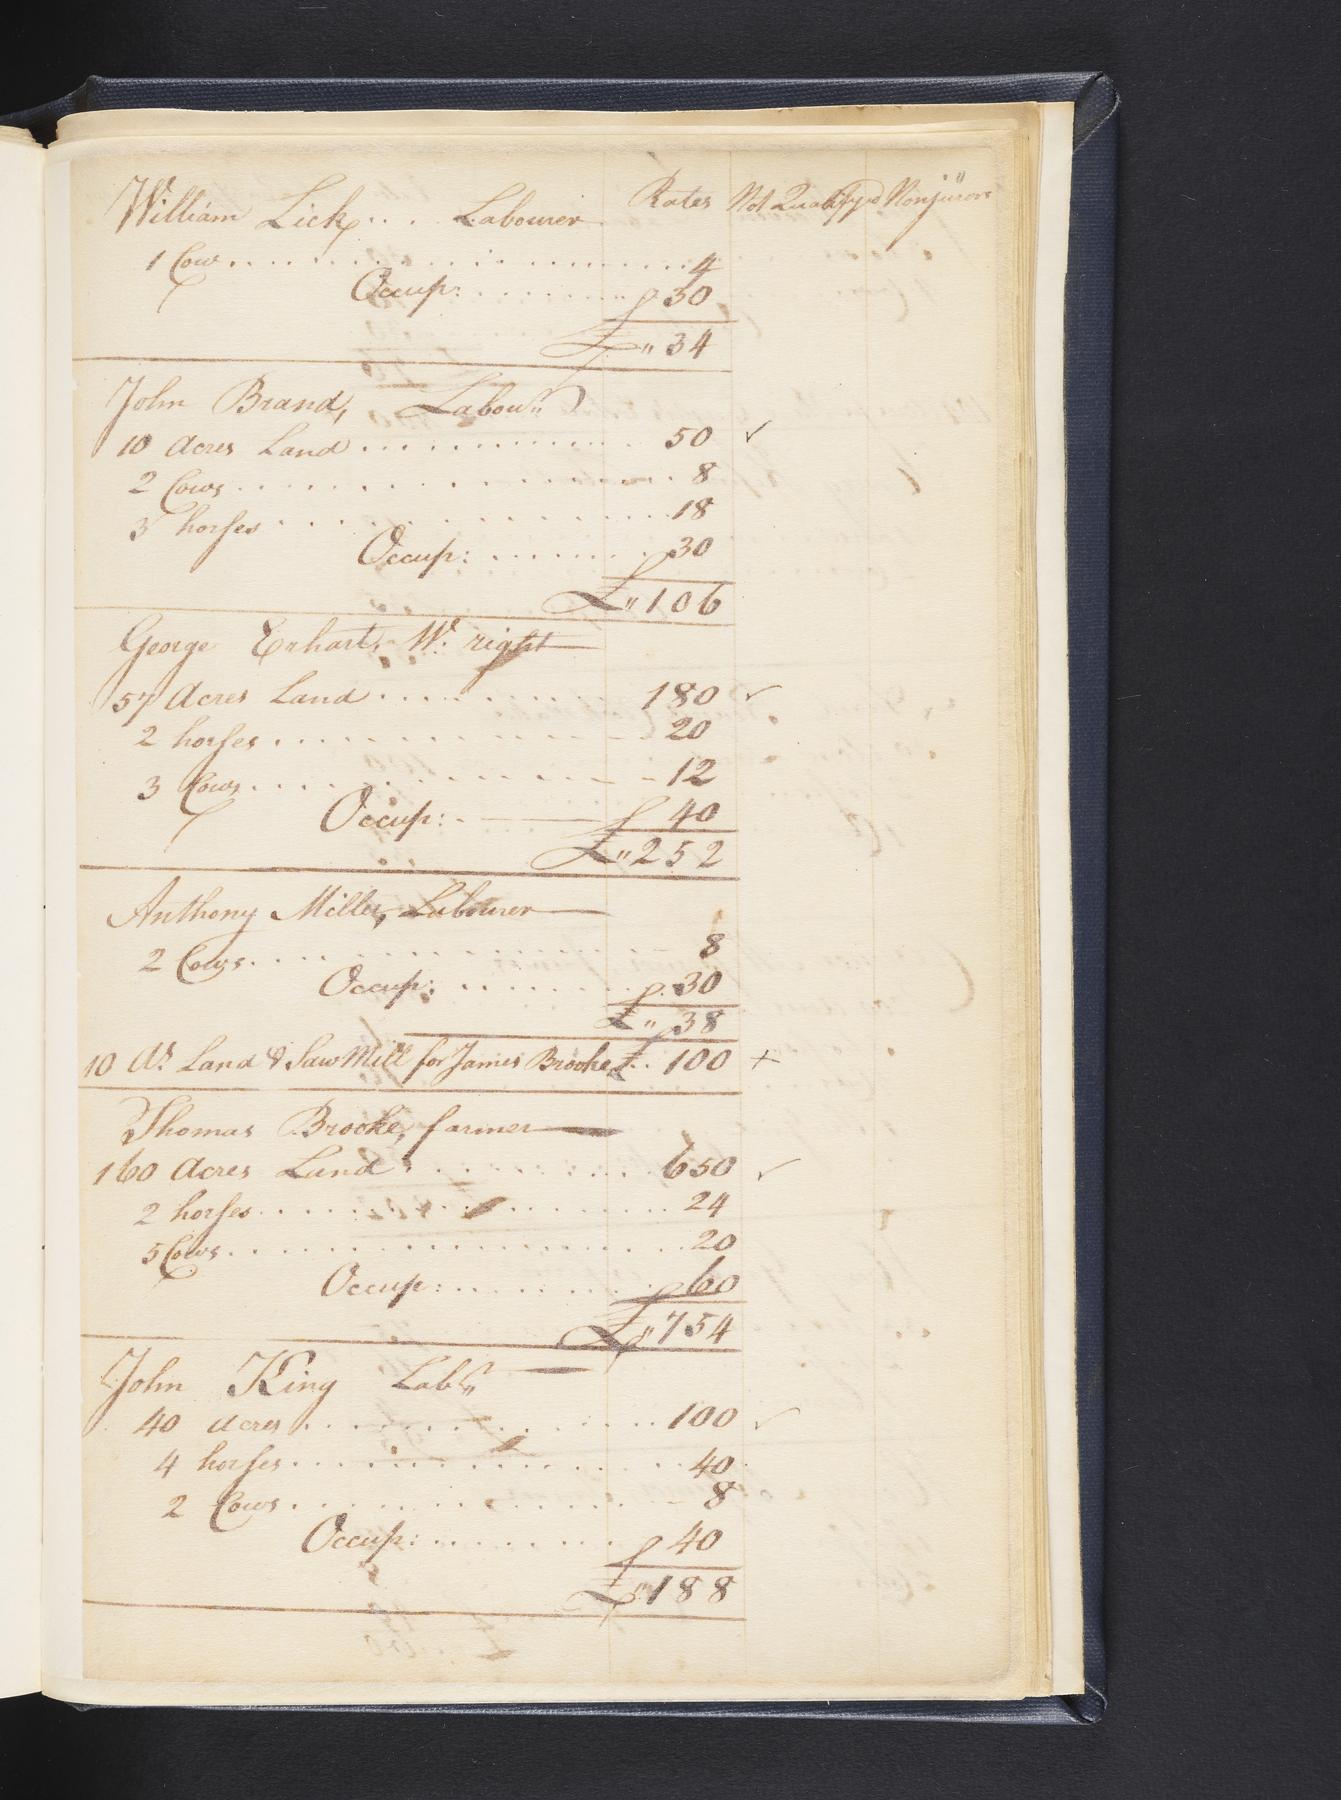 Rates Not Qualifyed Nonjurors
William Lick . . . Labourer
1 Cow . . . . 4
Occup: . . . . 30
£ " 34
John Brand, Labou:r
10 Acres Land . . . . 50 ✓
2 Cows . . . . 8
3 horses . . . . 18
Occup: . . . . 30
£ " 106
George Erhart, W: right
57 Acres Land . . . . 180 ✓
2 horses . . . . 20
3 Cows . . . . 12
Occup: . . . . 40
£ " 252
Anthony Miller, Labourer
2 Cows . . . . 8
Occup: . . . . 30
£ " 38
10 As. Land & Saw Mill for James Brooke £ . . 100 +
Thomas Brooke, farmer
160 Acres Land . . . . 650 ✓
2 horses . . . . 24
5 Cows . . . . 20
Occup: . . . . 60
£ " 754
John King Labr.
40 acres . . . . 100 ✓
4 horses . . . . 40
2 Cows . . . . 8
Occup: . . . . 40
£ " 188